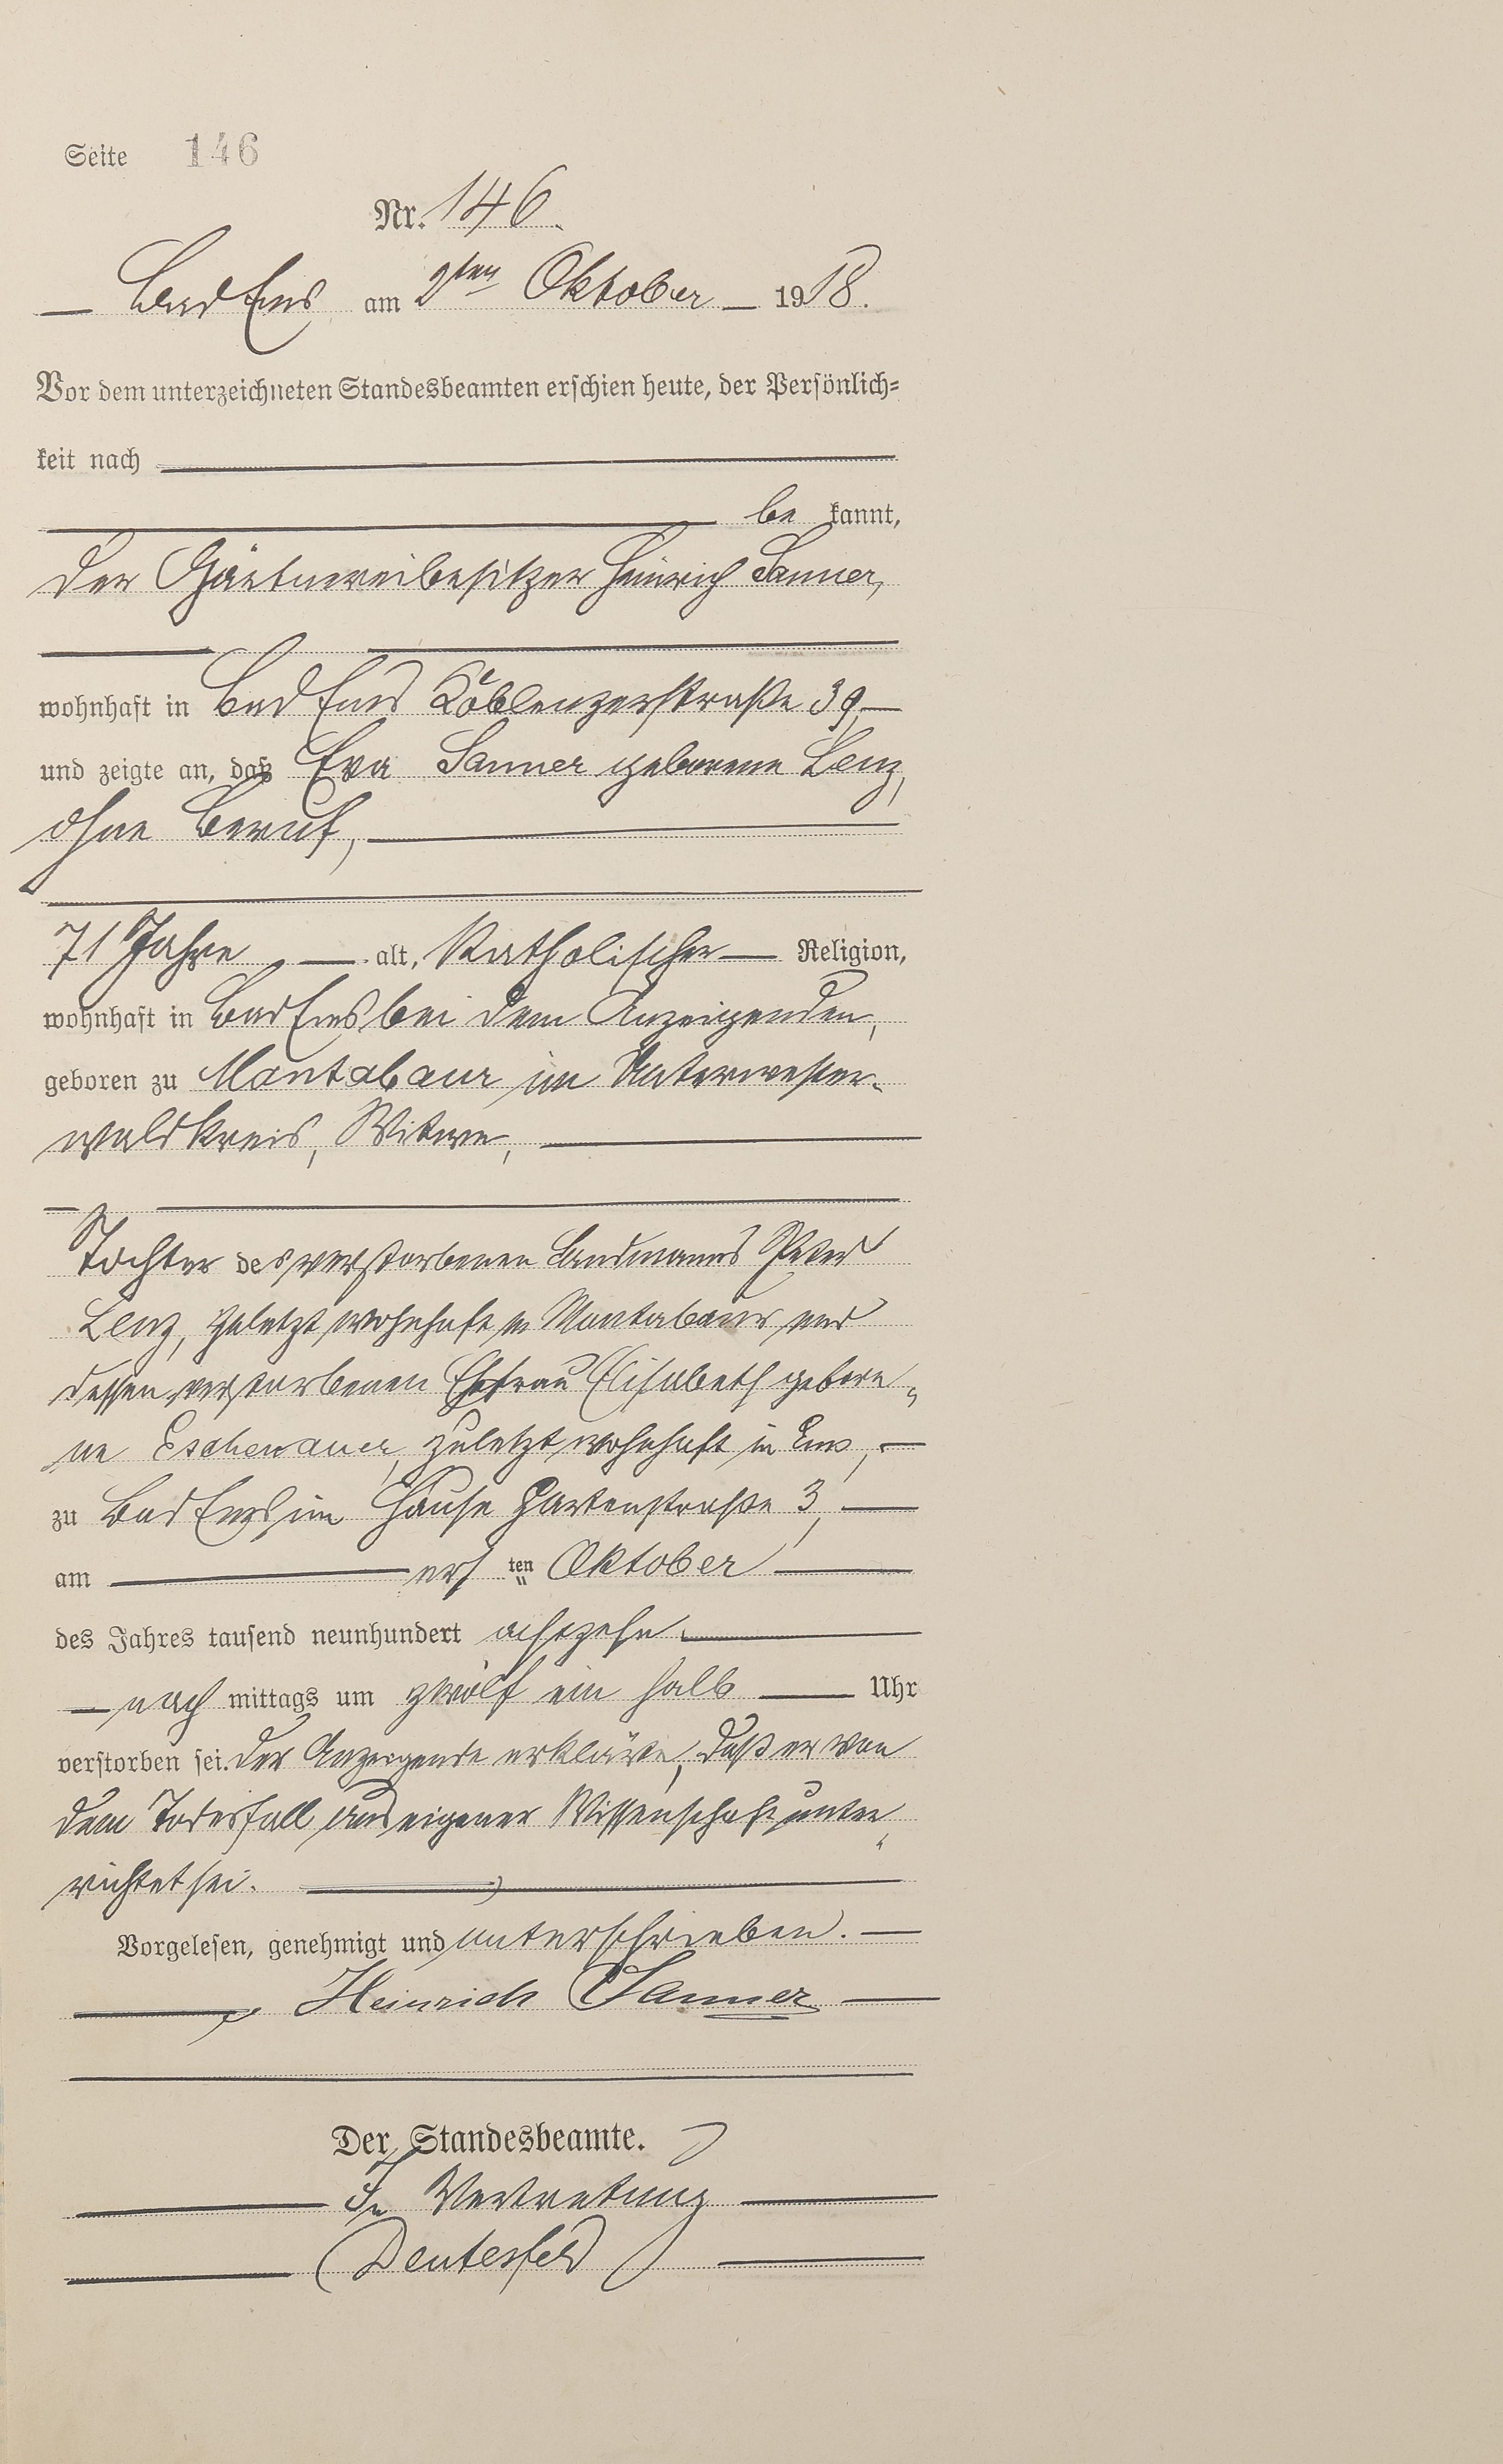 Seite 146
Nr. 146.
Bad Ems am 2ten Oktober 1918.
Vor dem unterzeichneten Standesbeamten erschien heute, der Persönlich=
keit nach
be kannt,
der Gärtnereibesitzer Heinrich Sanner,
wohnhaft in Bad Ems Coblenzerstraße 39,
und zeigte an, daß Eva Sanner geborene Lenz,
ohne Beruf,
71 Jahre alt, Katholischer Religion,
wohnhaft in Bad Ems bei dem Anzeigenden,
geboren zu Montabaur im Unterwester-
waldkreis, Witwe,
Tochter des verstorbenen Landmanns Peter
Lenz, zuletzt wohnhaft in Montabaur und
dessen verstorbenen Ehefrau Elisabeth gebore-
ne Eschenauer, zuletzt wohnhaft in Ems,
zu Bad Ems im Hause Gartenstraße 3,
am ers ten Oktober
des Jahres tausend neunhundert achtzehn
nach mittags um zwölf ein halb Uhr
verstorben sei. Der Anzeigende erklärte, daß er von
dem Todesfall aus eigener Wissenschaft unter-
richtet sei.
Vorgelesen, genehmigt und unterschrieben.
Heinrich Sanner
Der Standesbeamte.
In Vertretung
Deutesfeld